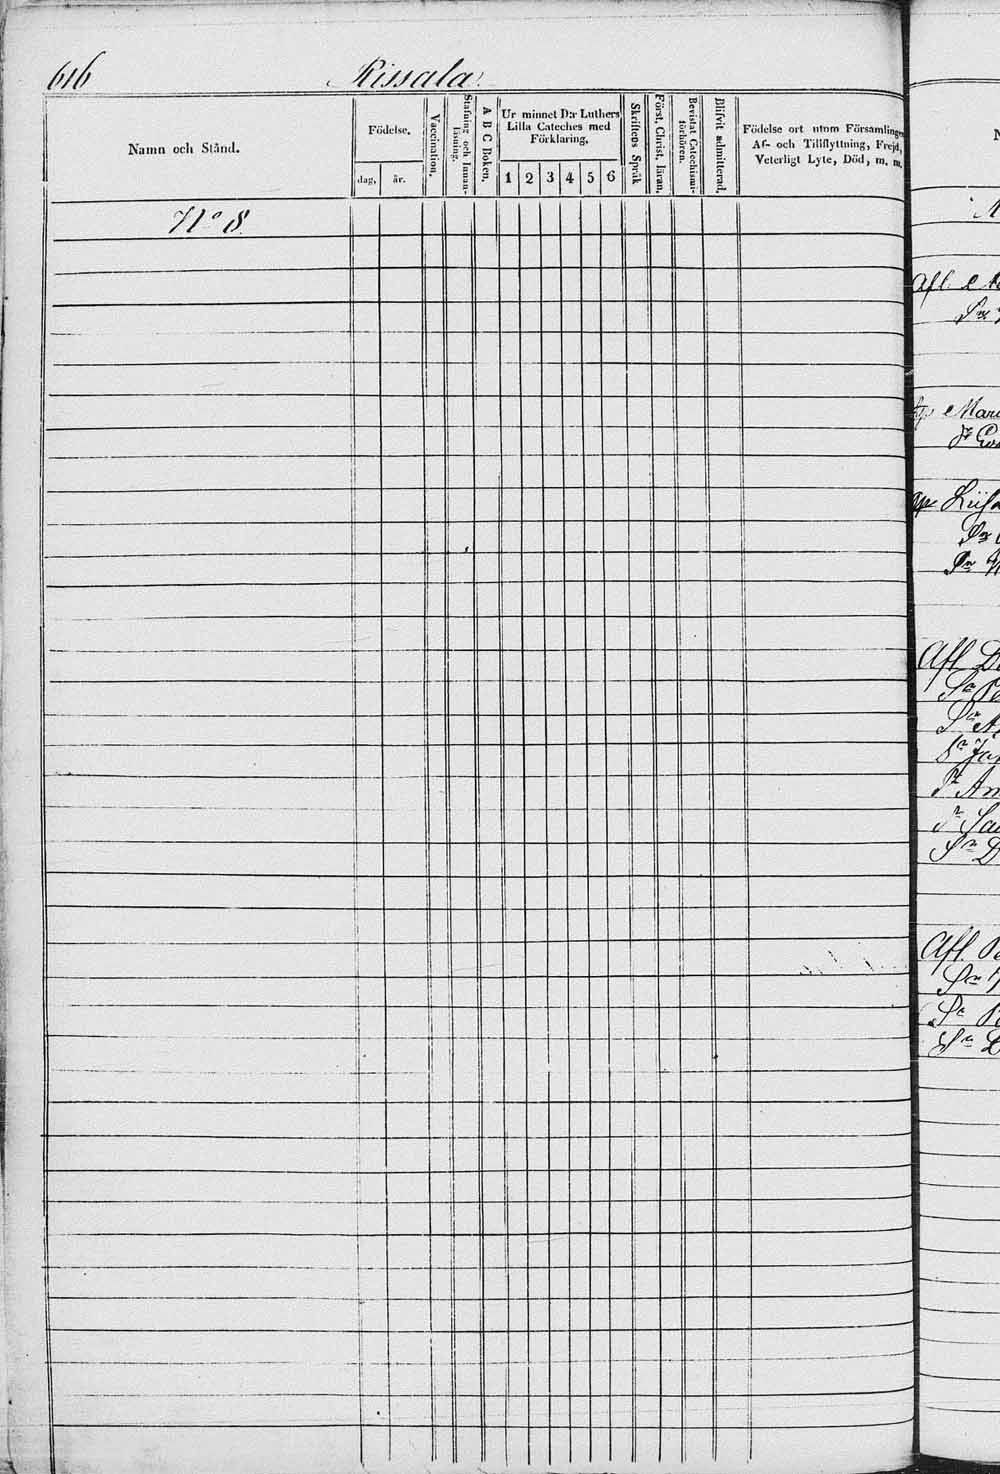 616 Rissala.
Namn och Stånd.
Födelse.
dag. år.
Vaccination.
Stafning och Innan-
läsning.
A B C Boken.
Ur minnet D:r Luthers
Lilla Cateches med
Förklaring.
1 2 3 4 5 6
Skriftens Språk
Först. Christ. läran.
Bevistat Catechismi-
förhören.
Blifvit admitterad.
Födelse ort utom Församlingen
Af- och Tillflyttning, Frejd,
Veterligt Lyte, Död, m. m.
N:o 8.
Afl.
Mari
Afl. D
Afl.